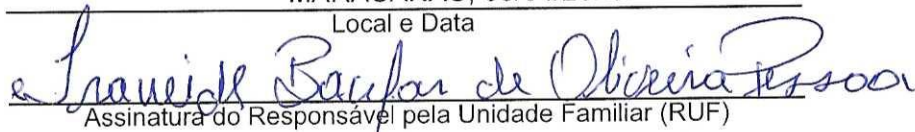 Local e Data
de Oliveira Pessoa
Assinatura do Responsável pela Unidade Familiar (RUF)